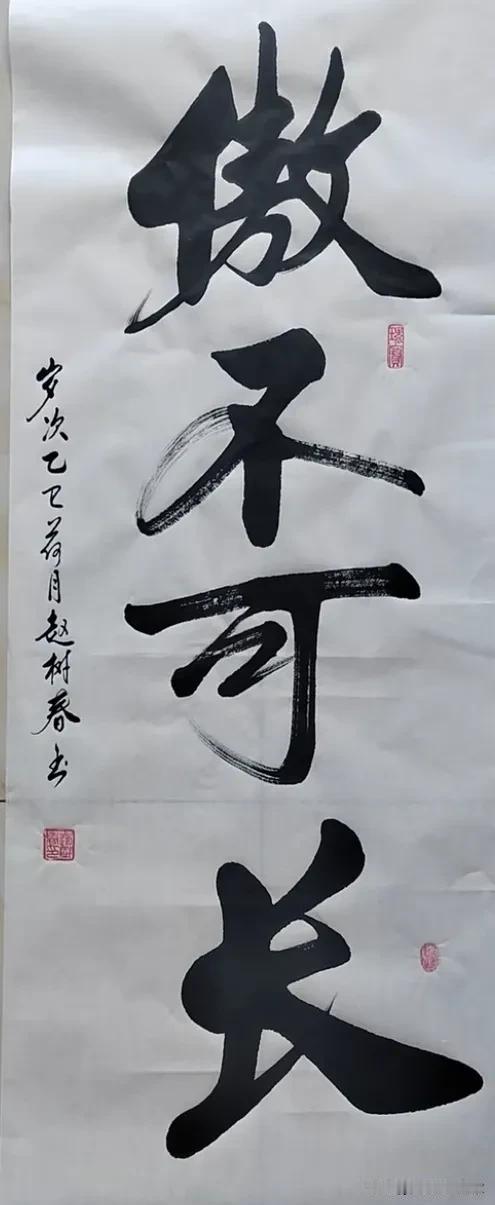 傲不可长
岁次乙巳荷月赵树春书